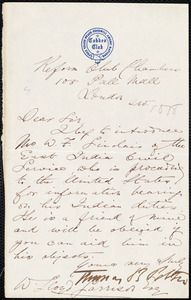 Cobden Club
Reform Club Chambers
105 Pall Mall
London
1878
Dear Sir
I beg to introduce
Mr W. F. Sinclair of the
East India Civil
Service who is proceeding
to the United States
for information bearing
on his Indian duties.
He is a friend of mine
and will
assist him in
his objects.
Yours very truly
Thomas B. Potter
W Lloyd Garrison Esq